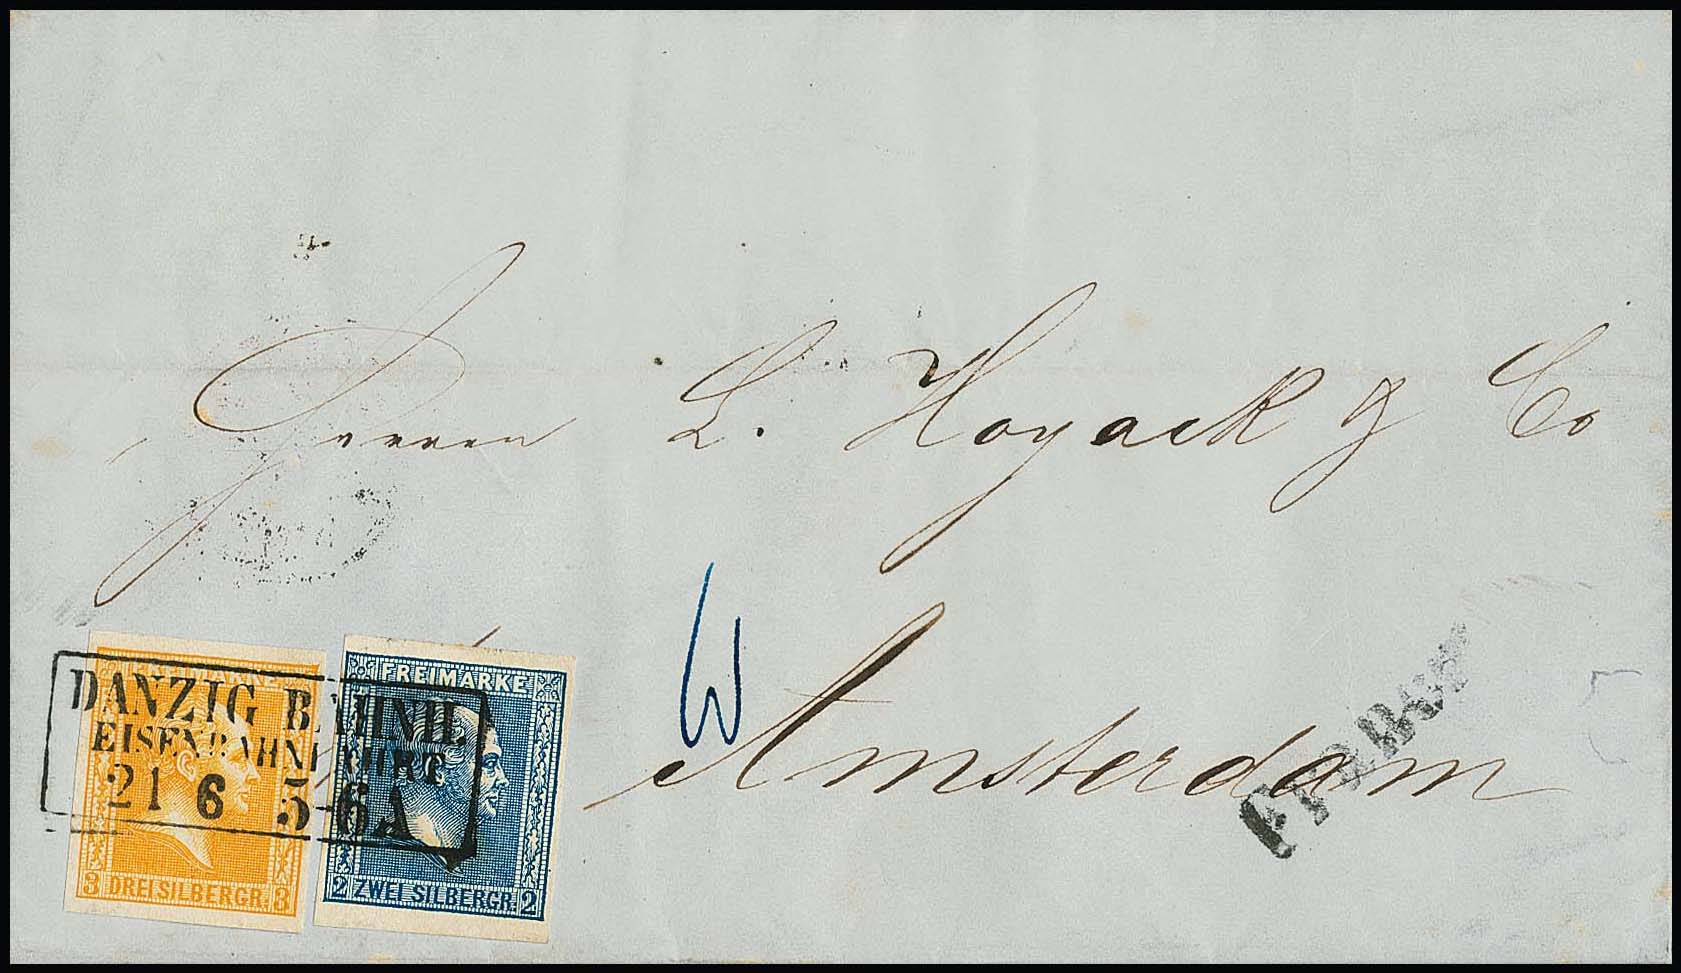 Herren L. Hoyack & Co
Amsterdam
3
Franco
DANZIG BAHNH.
EISENBAHNFAHRT
21 6 5-6A
FREIMARKE
3 DREI SILBERGR. 3
FREIMARKE
2 ZWEI SILBERGR. 2